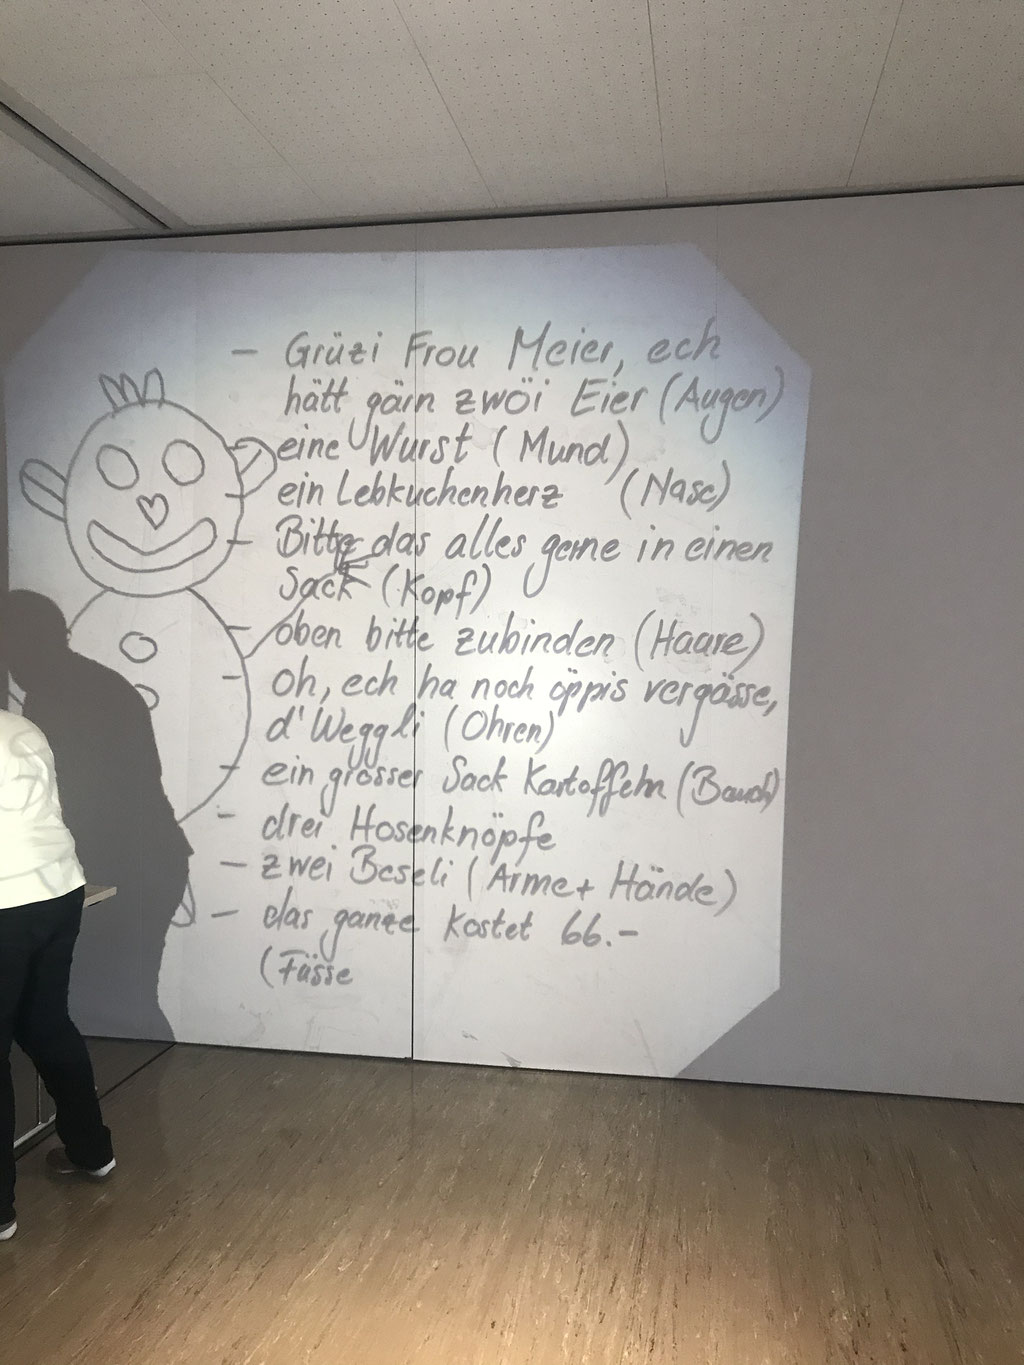 - Grüzi Frou Meier, ech
hätt gärn zwöi Eier (Augen)
- eine Wurst (Mund)
- ein Lebkuchenherz (Nase)
- Bitte das alles gerne in einen
Sack (Kopf)
- oben bitte zubinden (Haare)
- oh, ech ha noch öppis vergässe,
d'Weggli (Ohren)
- ein grosser Sack Kartoffeln (Bauch)
- drei Hosenknöpfe
- zwei Beseli (Arme + Hände)
- das ganze kostet 66.-
(Füsse